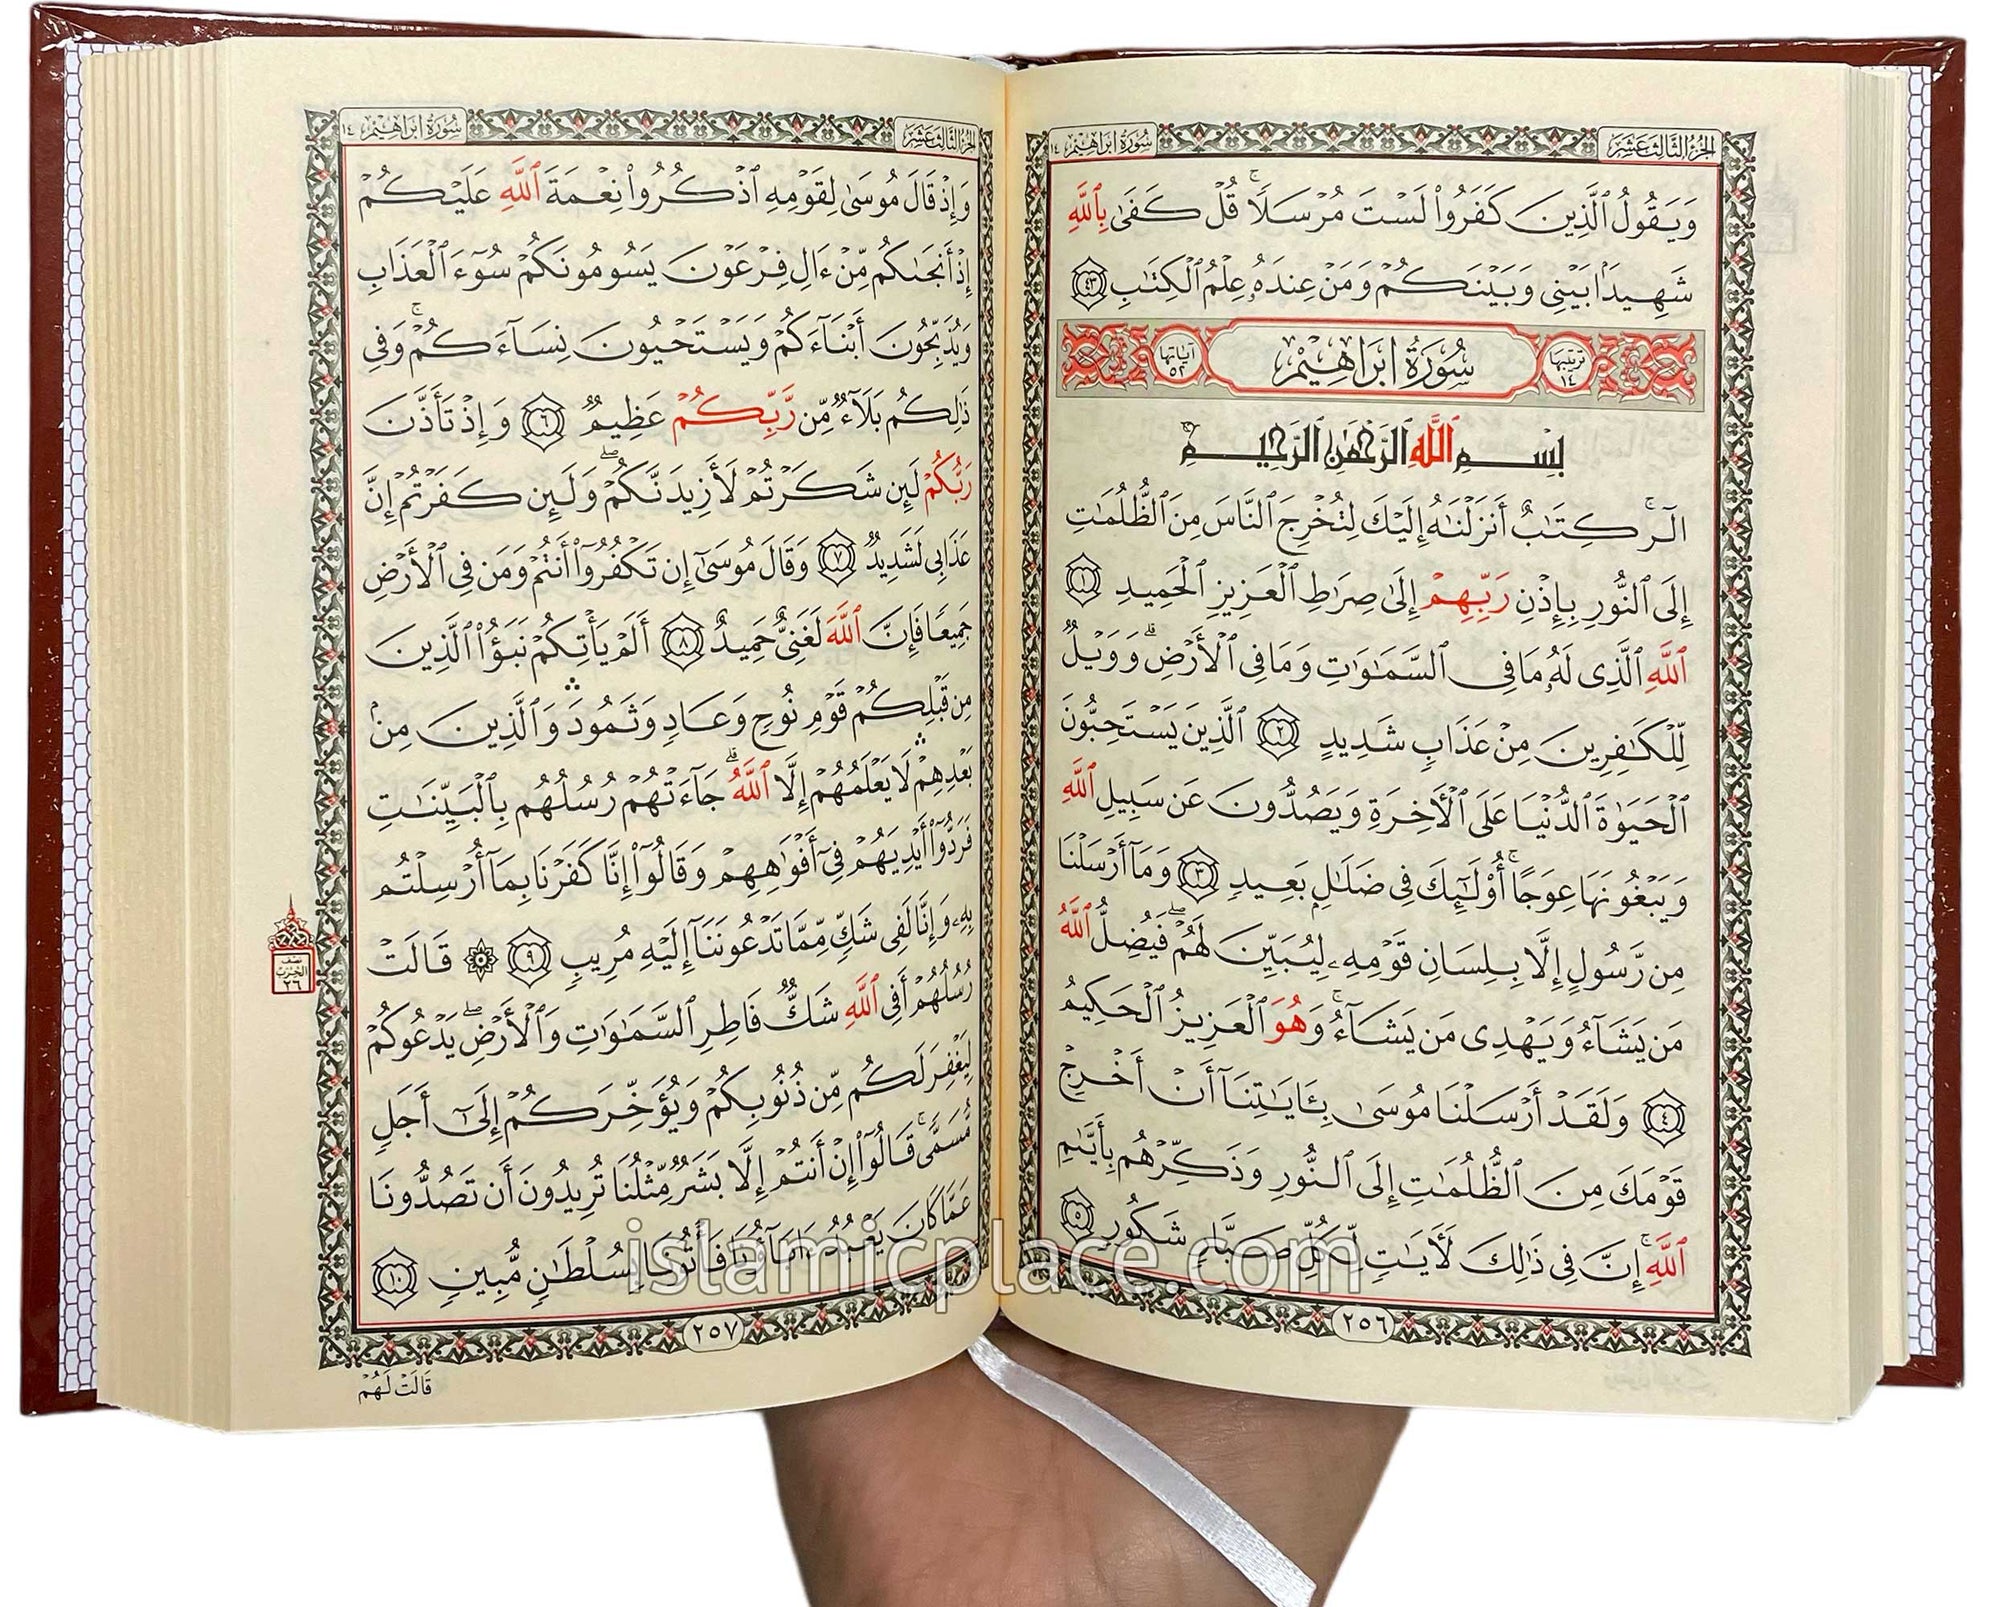 الجزء الثالث عشر
سورة ابراهيم ١٤
وَيَقُولُ ٱلَّذِينَ كَفَرُوا۟ لَسْتَ مُرْسَلًا ۚ قُلْ كَفَىٰ بِٱللَّهِ
شَهِيدًۢا بَيْنِى وَبَيْنَكُمْ وَمَنْ عِندَهُۥ عِلْمُ ٱلْكِتَٰبِ ٤٣
ترتيبها ١٤
سُورَةُ ابراهِيْم
آياتها ٥٢
بِسْمِ ٱللَّهِ ٱلرَّحْمَٰنِ ٱلرَّحِيمِ
الٓر ۚ كِتَٰبٌ أَنزَلْنَٰهُ إِلَيْكَ لِتُخْرِجَ ٱلنَّاسَ مِنَ ٱلظُّلُمَٰتِ
إِلَى ٱلنُّورِ بِإِذْنِ رَبِّهِمْ إِلَىٰ صِرَٰطِ ٱلْعَزِيزِ ٱلْحَمِيدِ ١
ٱللَّهِ ٱلَّذِى لَهُۥ مَا فِى ٱلسَّمَٰوَٰتِ وَمَا فِى ٱلْأَرْضِ ۗ وَوَيْلٌ
لِّلْكَٰفِرِينَ مِنْ عَذَابٍ شَدِيدٍ ٢ ٱلَّذِينَ يَسْتَحِبُّونَ
ٱلْحَيَوٰةَ ٱلدُّنْيَا عَلَى ٱلْءَاخِرَةِ وَيَصُدُّونَ عَن سَبِيلِ ٱللَّهِ
وَيَبْغُونَهَا عِوَجًا ۚ أُو۟لَٰٓئِكَ فِى ضَلَٰلٍۭ بَعِيدٍ ٣ وَمَآ أَرْسَلْنَا
مِن رَّسُولٍ إِلَّا بِلِسَانِ قَوْمِهِۦ لِيُبَيِّنَ لَهُمْ ۖ فَيُضِلُّ ٱللَّهُ
مَن يَشَآءُ وَيَهْدِى مَن يَشَآءُ ۚ وَهُوَ ٱلْعَزِيزُ ٱلْحَكِيمُ
٤ وَلَقَدْ أَرْسَلْنَا مُوسَىٰ بِـَٔايَٰتِنَآ أَنْ أَخْرِجْ
قَوْمَكَ مِنَ ٱلظُّلُمَٰتِ إِلَى ٱلنُّورِ وَذَكِّرْهُم بِأَيَّىٰمِ
ٱللَّهِ ۚ إِنَّ فِى ذَٰلِكَ لَءَايَٰتٍ لِّكُلِّ صَبَّارٍ شَكُورٍ ٥
٢٥٦
الجزء الثالث عشر
سورة ابراهيم ١٤
وَإِذْ قَالَ مُوسَىٰ لِقَوْمِهِ ٱذْكُرُوا۟ نِعْمَةَ ٱللَّهِ عَلَيْكُمْ
إِذْ أَنجَىٰكُم مِّنْ ءَالِ فِرْعَوْنَ يَسُومُونَكُمْ سُوٓءَ ٱلْعَذَابِ
وَيُذَبِّحُونَ أَبْنَآءَكُمْ وَيَسْتَحْيُونَ نِسَآءَكُمْ ۚ وَفِى
ذَٰلِكُم بَلَآءٌ مِّن رَّبِّكُمْ عَظِيمٌ ٦ وَإِذْ تَأَذَّنَ
رَبُّكُمْ لَئِن شَكَرْتُمْ لَأَزِيدَنَّكُمْ ۖ وَلَئِن كَفَرْتُمْ إِنَّ
عَذَابِى لَشَدِيدٌ ٧ وَقَالَ مُوسَىٰٓ إِن تَكْفُرُوٓا۟ أَنتُمْ وَمَن فِى ٱلْأَرْضِ
جَمِيعًا فَإِنَّ ٱللَّهَ لَغَنِىٌّ حَمِيدٌ ٨ أَلَمْ يَأْتِكُمْ نَبَؤُا۟ ٱلَّذِينَ
مِن قَبْلِكُمْ قَوْمِ نُوحٍ وَعَادٍ وَثَمُودَ ۛ وَٱلَّذِينَ مِنۢ
بَعْدِهِمْ ۛ لَا يَعْلَمُهُمْ إِلَّا ٱللَّهُ ۚ جَآءَتْهُمْ رُسُلُهُم بِٱلْبَيِّنَٰتِ
فَرَدُّوٓا۟ أَيْدِيَهُمْ فِىٓ أَفْوَٰهِهِمْ وَقَالُوٓا۟ إِنَّا كَفَرْنَا بِمَآ أُرْسِلْتُم
بِهِۦ وَإِنَّا لَفِى شَكٍّ مِّمَّا تَدْعُونَنَآ إِلَيْهِ مُرِيبٍ ٩ ۞ قَالَتْ
رُسُلُهُمْ أَفِى ٱللَّهِ شَكٌّ فَاطِرِ ٱلسَّمَٰوَٰتِ وَٱلْأَرْضِ ۖ يَدْعُوكُمْ
لِيَغْفِرَ لَكُم مِّن ذُنُوبِكُمْ وَيُؤَخِّرَكُمْ إِلَىٰٓ أَجَلٍ
مُّسَمًّى ۚ قَالُوٓا۟ إِنْ أَنتُمْ إِلَّا بَشَرٌ مِّثْلُنَا تُرِيدُونَ أَن تَصُدُّونَا
عَمَّا كَانَ يَعْبُدُ ءَابَآؤُنَا فَأْتُونَا بِسُلْطَٰنٍ مُّبِينٍ ١٠
نصف
الحزب
٢٦
٢٥٧
قَالَتْ لَهُمْ
islamicplace.com